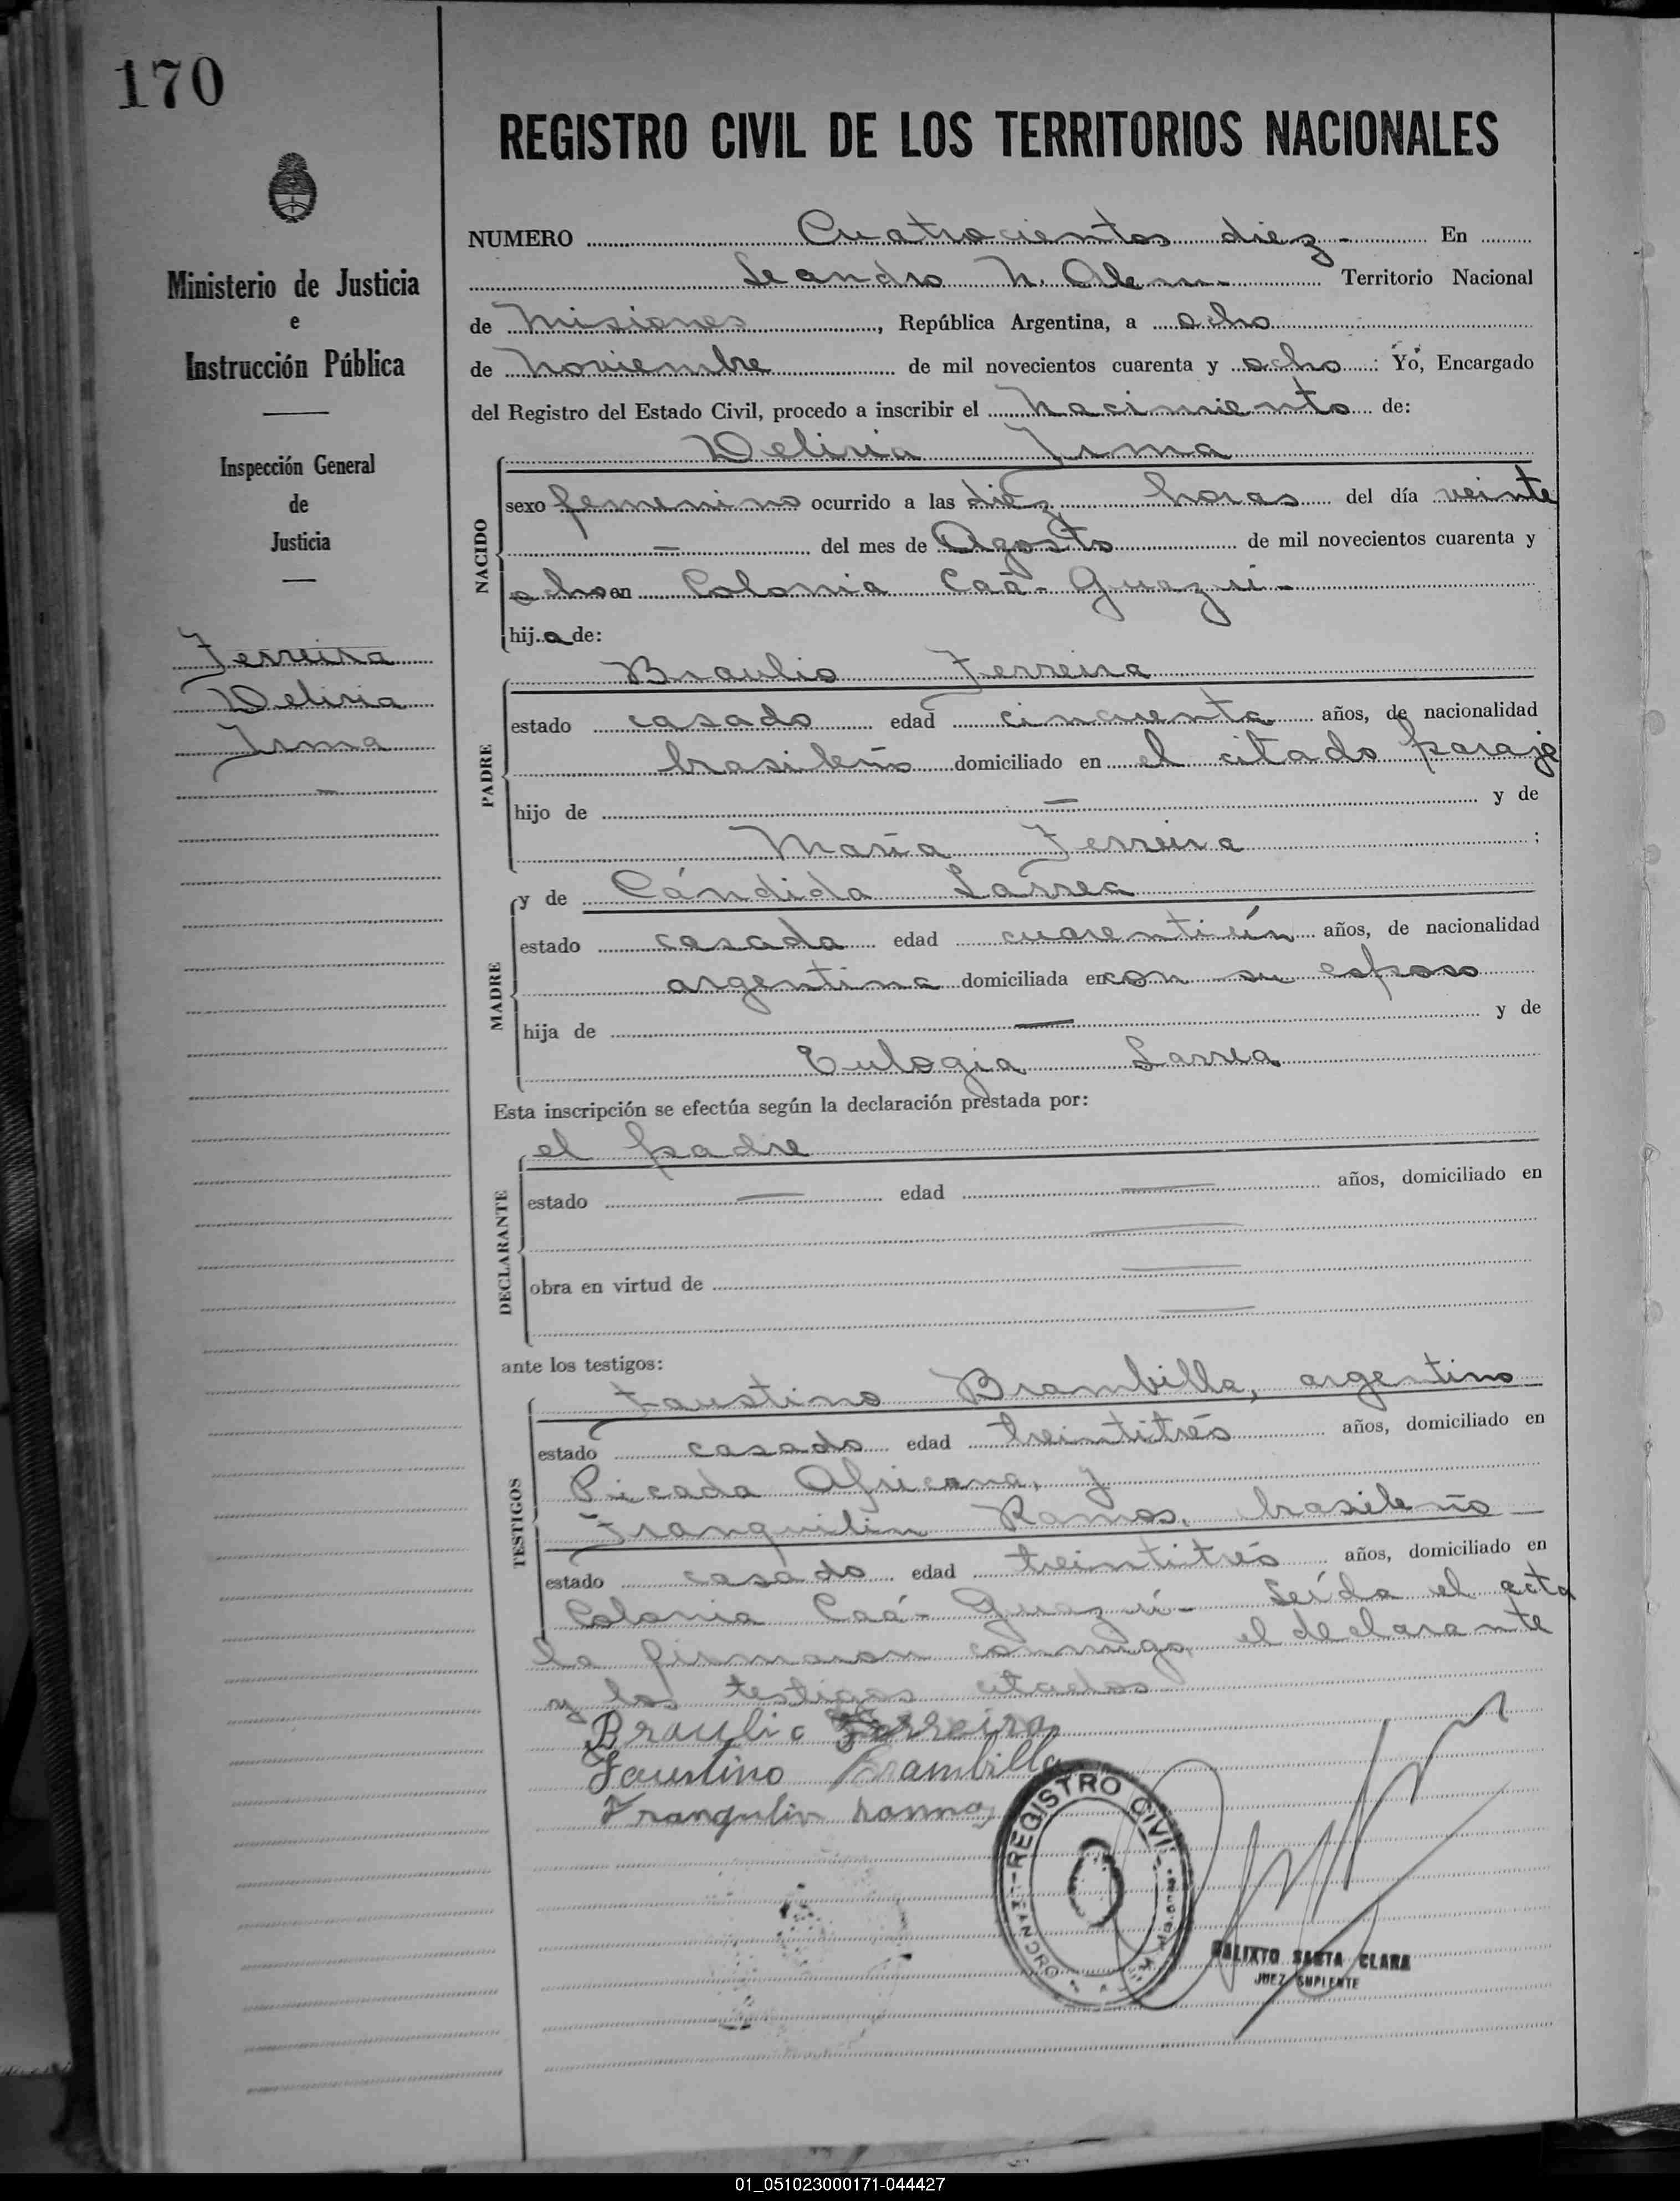 170
REGISTRO CIVIL DE LOS TERRITORIOS NACIONALES
Ministerio de Justicia
e
Instrucción Pública
Inspección General
de
Justicia
Ferreira
Deliria
Irma
NUMERO Cuatrocientos diez - En
Leandro N. Alem - Territorio Nacional
de Misiones, República Argentina, a ocho
de Noviembre de mil novecientos cuarenta y ocho: Yo, Encargado
del Registro del Estado Civil, procedo a inscribir el Nacimiento de:
Deliria Irma
NACIDO
sexo femenino ocurrido a las diez horas del día veinte
— del mes de Agosto de mil novecientos cuarenta y
ocho en Colonia Caá-Guazú-
hij.a de:
Braulio Ferreira
PADRE
estado casado edad cincuenta años, de nacionalidad
brasileño domiciliado en el citado paraje
hijo de — y de
María Ferreira ;
y de Cándida Larrea
MADRE
estado casada edad cuarentiún años, de nacionalidad
argentina domiciliada en con su esposo
hija de — y de
Eulogia Larrea
Esta inscripción se efectúa según la declaración prestada por:
el padre
DECLARANTE
estado — edad — años, domiciliado en
—
obra en virtud de —
—
ante los testigos:
Faustino Brambilla, argentino
TESTIGOS
estado casado edad treintitrés años, domiciliado en
Picada Africana, y
Franquilin Ramos, brasileño —
estado casado edad treintitrés años, domiciliado en
Colonia Caá-Guazú- Leída el acta
la firmaron conmigo, el declarante
y los testigos citados
Braulio Ferreira
Faustino Brambilla
Franqulin
REGISTRO CIVIL
CALIXTO SANTA CLARA
JUEZ SUPLENTE
01_051023000171-044427